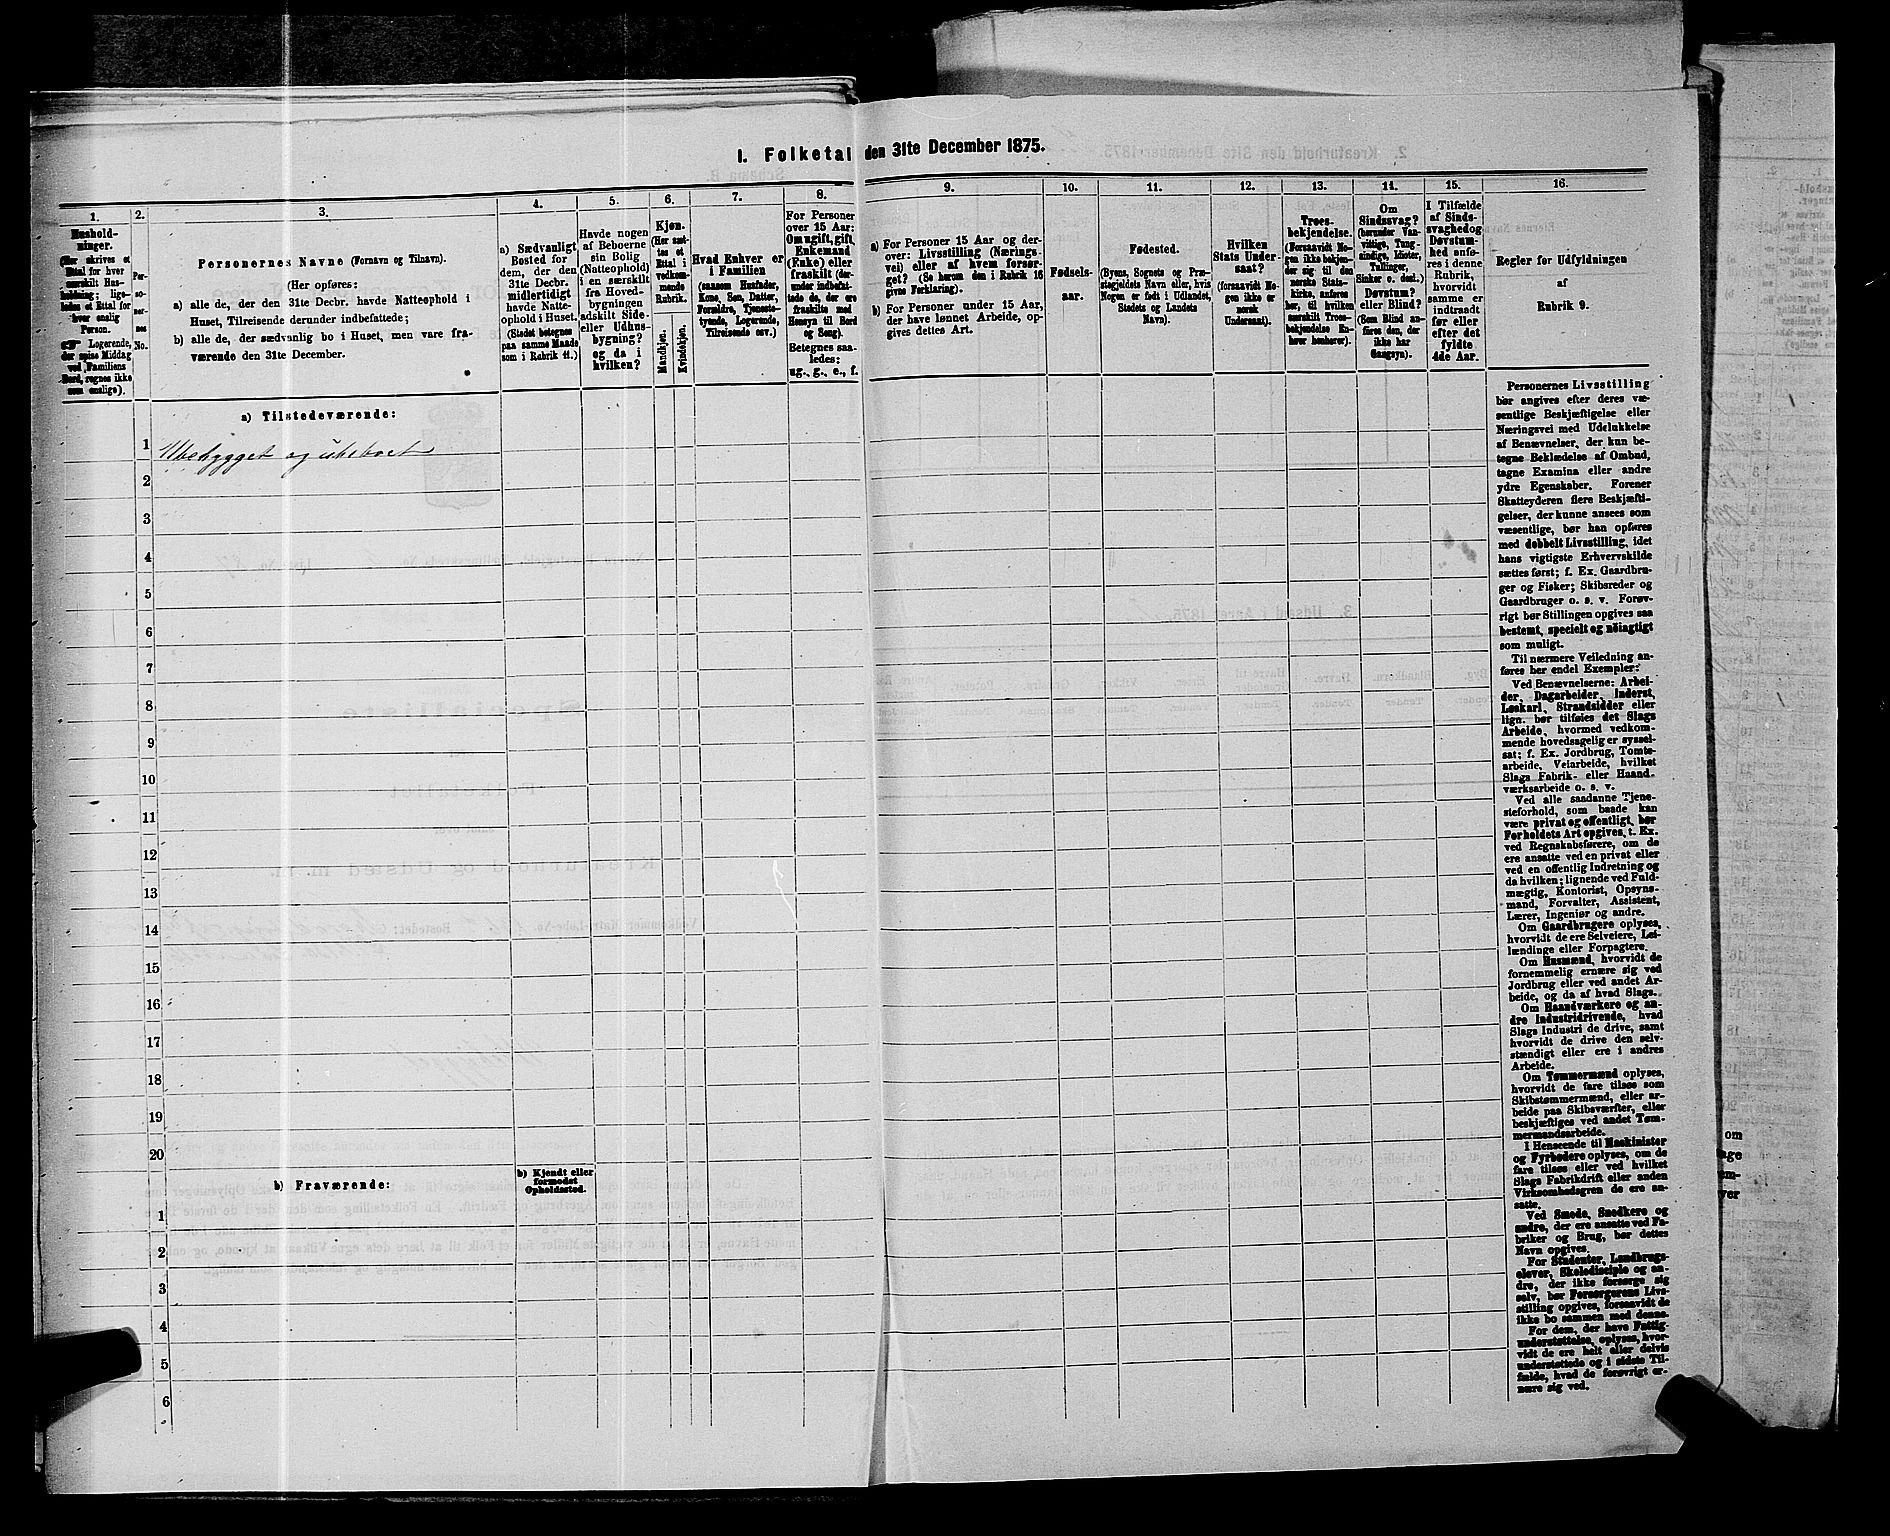 1. Folketal den 31te December 1875.
1.
Hushold-
ninger.
(Her skrives et
Ettal for hver
særskilt Hus-
holdning; lige-
ledes et Ettal for
hver enslig
Person.
Logerende,
der spise Middag
ved Familiens
Bord, regnes ikke
som enslige).
2.
Per-
so-
ner-
nes
No.
3.
Personernes Navne (Fornavn og Tilnavn).
(Her opføres:
a) alle de, der den 31te Decbr. havde Natteophold i
Huset, Tilreisende derunder indbefattede;
b) alle de, der sædvanlig bo i Huset, men vare fra-
værende den 31te December.
4.
a) Sædvanligt
Bosted for
dem, der den
31te Decbr.
midlertidigt
havde Natte-
ophold i Huset.
(Stedet betegnes
paa samme Maade
som i Rubrik 11.)
5.
Havde nogen
af Beboerne
sin Bolig
(Natteophold)
i en særskilt
fra Hoved-
bygningen
adskilt Side-
eller Udhus-
bygning?
og da i
hvilken?
6.
Kjøn.
(Her sæt-
tes et
Ettal i
vedkom-
mende
Rubrik.
Mandkjøn.
Kvindekjøn.
7.
Hvad Enhver er
i Familien
(saasom Husfader,
Kone, Søn, Datter,
Forældre, Tjeneste-
tyende, Logerende,
Tilreisende osv.)
8.
For Personer
over 15 Aar:
Om ugift, gift,
Enkemand
(Enke) eller
fraskilt (der-
under indbefat-
tede de, der ere
fraskilte med
Hensyn til Bord
og Seng).
Betegnes saa-
ledes:
ug., g., e., f.
9.
a) For Personer 15 Aar og der-
over: Livsstilling (Nærings-
vei) eller af hvem forsør-
get? (Se herom den i Rubrik 16
givne Forklaring).
b) For Personer under 15 Aar,
der have lønnet Arbeide, op-
gives dettes Art.
10.
Fødsels-
aar.
11.
Fødested.
(Byens, Sognets og Præ-
stegjeldets Navn eller, hvis
Nogen er født i Udlandet,
Stedets og Landets
Navn).
12.
Hvilken
Stats Under-
saat?
(forsaavidt No-
gen ikke er
norsk
Undersaat).
13.
Troes-
bekjendelse.
(Forsaavidt No-
gen ikke bekjen-
der sig til den
norske Stats-
kirke, anføres
her, til hvilken
særskilt Troes-
bekjendelse En-
hver henhører).
14.
Om
Sindssvag?
(herunder Van-
vittige, Tung-
sindige, Idioter,
Tullinger,
Sinker o. desl.)
Døvstum?
eller Blind?
(Som Blind an-
føres den, der
ikke har
Gangsyn).
15.
I Tilfælde
af Sinds-
svaghed og
Døvstum-
hed anfø-
res i denne
Rubrik,
hvorvidt
samme er
indtraadt
før eller
efter det
fyldte
4de Aar.
16.
Regler for Udfyldningen
af
Rubrik 9.
a) Tilstedeværende:
1 Ubebygget og ubeboet
2
3
4
5
6
7
8
9
10
11
12
13
14
15
16
17
18
19
20
b) Fraværende:
b) Kjendt eller
formodet
Opholdssted.
1
2
3
4
5
6
Personernes Livsstilling
bør angives efter deres væ-
sentlige Beskjæftigelse eller
Næringsvei med Udelukkelse
af Benævnelser, der kun be-
tegne Beklædelse af Ombud,
tagne Examina eller andre
ydre Egenskaber. Forener
Skatteyderen flere Beskjæfti-
gelser, der kunne ansees som
væsentlige, bør han opføres
med dobbelt Livsstilling, idet
hans vigtigste Erhvervskilde
sættes først; f. Ex. Gaardbru-
ger og Fisker; Skibsreder og
Gaardbruger o. s. v. Forøv-
rigt bør Stillingen opgives saa
bestemt, specielt og nöiagtigt
som muligt.
Til nærmere Veiledning an-
føres her endel Exempler:
Ved Benævnelserne: Arbei-
der, Dagarbeider, Inderst,
Løskarl, Strandsidder eller
lign. bør tilføies det Slags
Arbeide, hvormed vedkom-
mende hovedsagelig er syssel-
sat; f. Ex. Jordbrug, Tomte-
arbeide, Veiarbeide, hvilket
Slags Fabrik- eller Haand-
værksarbeide o. s. v.
Ved alle saadanne Tjene-
steforhold, som baade kan
være privat og offentligt, bør
Forholdets Art opgives, t. Ex.
ved Regnskabsførere, om de
ere ansatte ved en privat eller
ved en offentlig Indretning og
da hvilken; lignende ved Fuld-
mægtig, Kontorist, Opsyns-
mand, Forvalter, Assistent,
Lærer, Ingeniør og andre.
Om Gaardbrugere oplyses,
hvorvidt de ere Selveiere, Lei-
lændinge eller Forpagtere.
Om Husmænd, hvorvidt de
fornemmelig ernære sig ved
Jordbrug eller ved andet Ar-
beide, og da af hvad Slags.
Om Haandværkere og an-
dre Industridrivende, hvad
Slags Industri de drive, samt
hvorvidt de drive den selv-
stændigt eller ere i andres
Arbeide.
Om Tømmermænd oplyses,
hvorvidt de fare tilsøs som
Skibstømmermænd, eller ar-
beide paa Skibsværfter, eller
beskjæftiges ved andet Tøm-
mermandsarbeide.
I Henseende til Maskinister
og Fyrbødere oplyses, om de
fare tilsøs eller ved hvilket
Slags Fabrikdrift eller anden
Virksomhedsgren de ere an-
satte.
Ved Smede, Snedkere og
andre, der ere ansatte ved Fa-
briker og Brug, bør dettes
Navn opgives.
For Studenter, Landbrugs-
elever, Skoledisciple og an-
dre, der ikke forsørge sig
selv, bør Forsørgerens Livs-
stilling opgives, forsaavidt de
ikke bo sammen med denne.
For dem, der have Fattig-
understøttelse, oplyses, hvor-
vidt de ere helt eller delvis
understøttede og i sidste Til-
fælde, hvad de forøvrigt er-
nære sig ved.